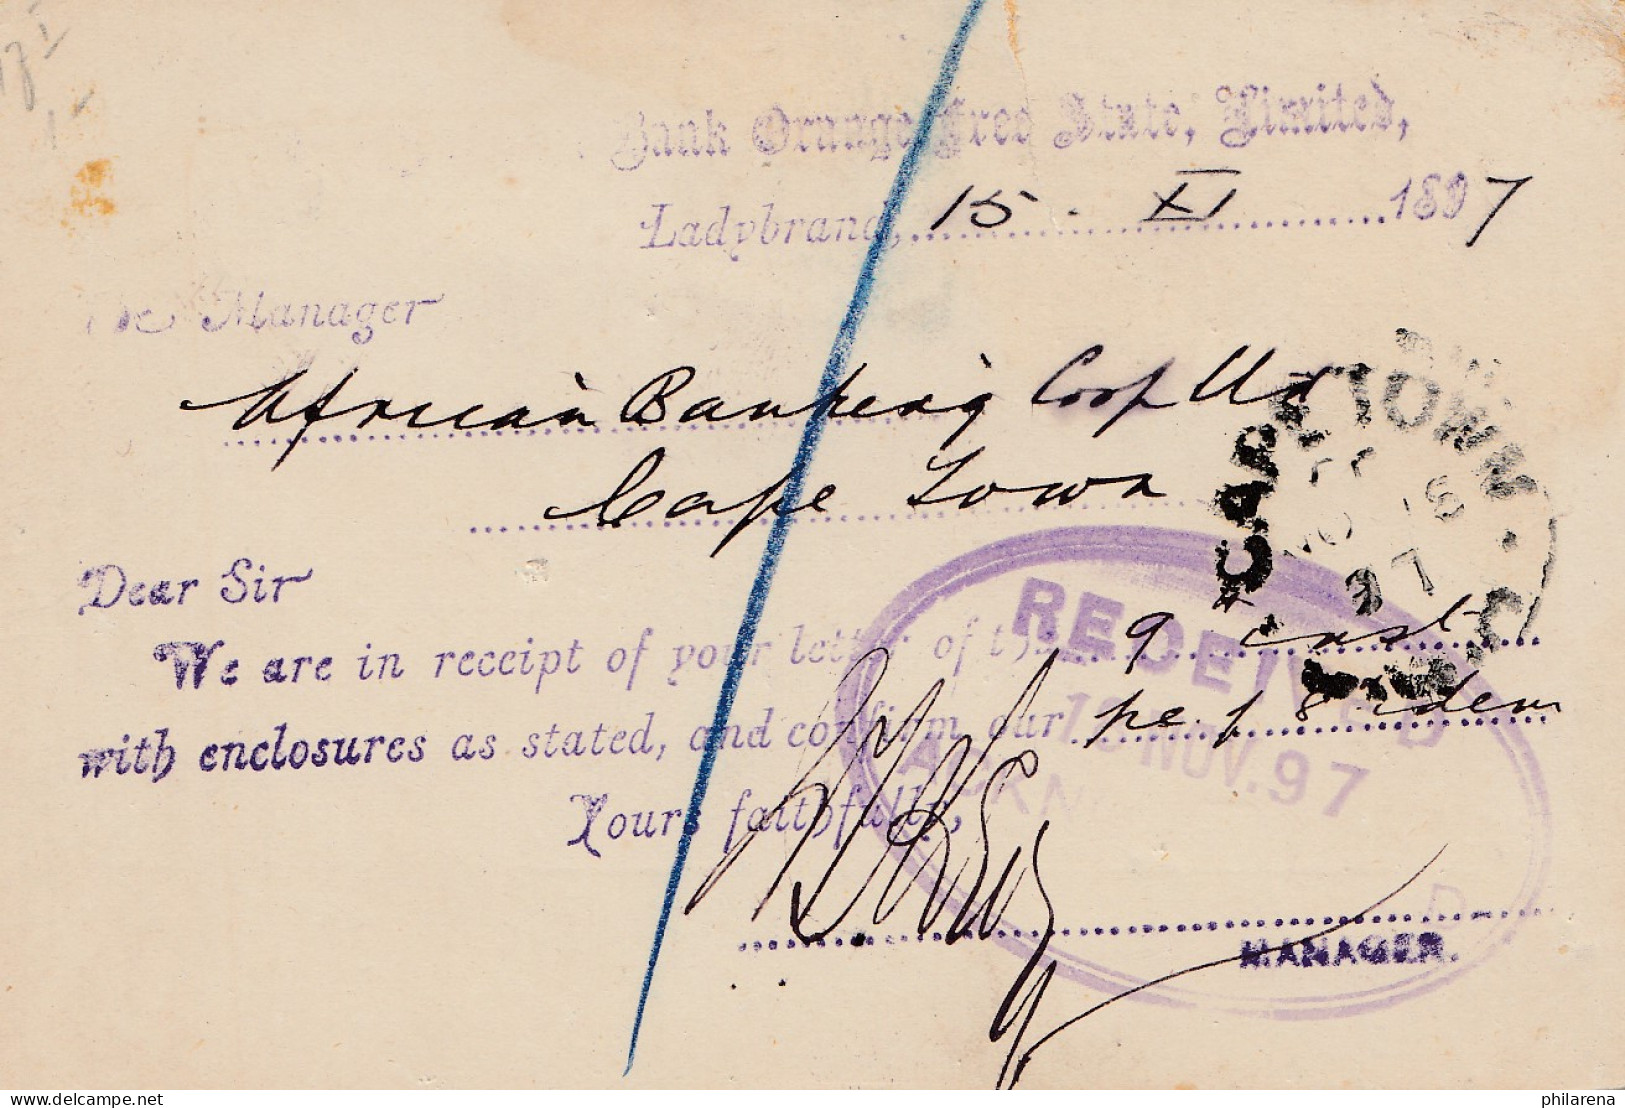 Bank Orange Free State, Limited,
Ladybrand, 15 . XI 1897
The Manager
African Banking Corp Ltd
Cape Town
CAPE TOWN
97
Dear Sir
We are in receipt of your letter of the 9 inst
with enclosures as stated, and confirm our pc. of 8 idem
Yours faithfully,
RECEIVED
18 NOV. 97
MANAGER.
www.delcampe.net
philarena